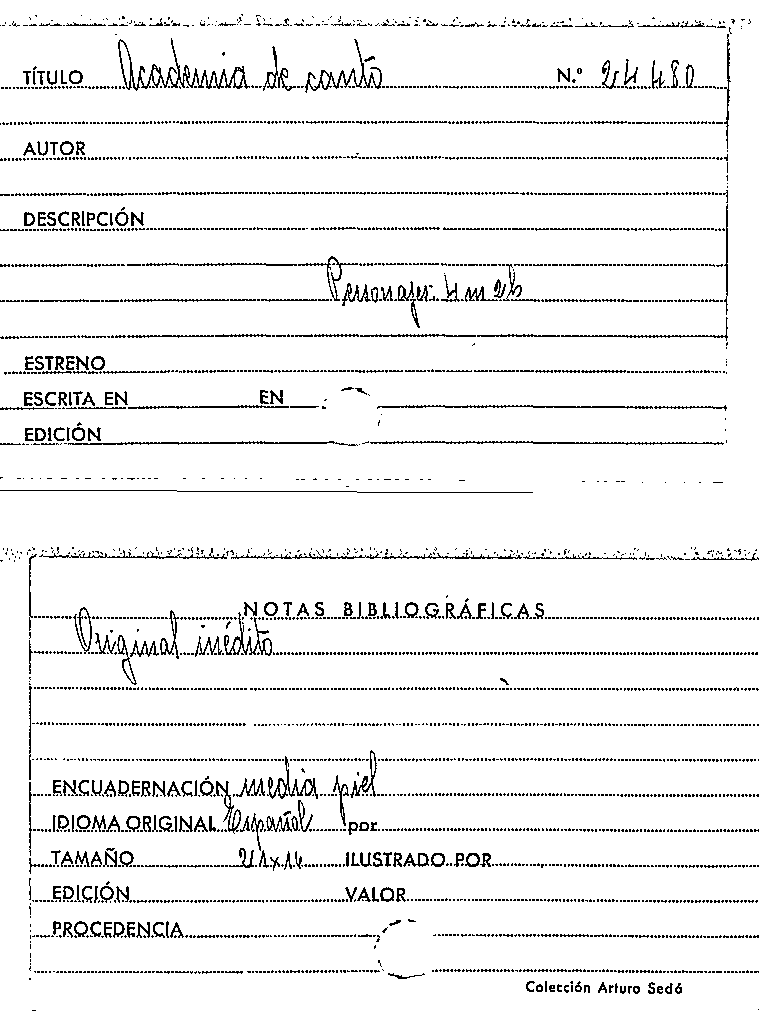 TÍTULO Academia de canto N.º 24480
AUTOR
DESCRIPCIÓN
Personajes: 4 m 2 h
ESTRENO
ESCRITA EN EN
EDICIÓN
NOTAS BIBLIOGRÁFICAS
Original inédito
ENCUADERNACIÓN media piel
IDIOMA ORIGINAL Español por
TAMAÑO ILUSTRADO POR
EDICIÓN VALOR
PROCEDENCIA
Colección Arturo Sedó